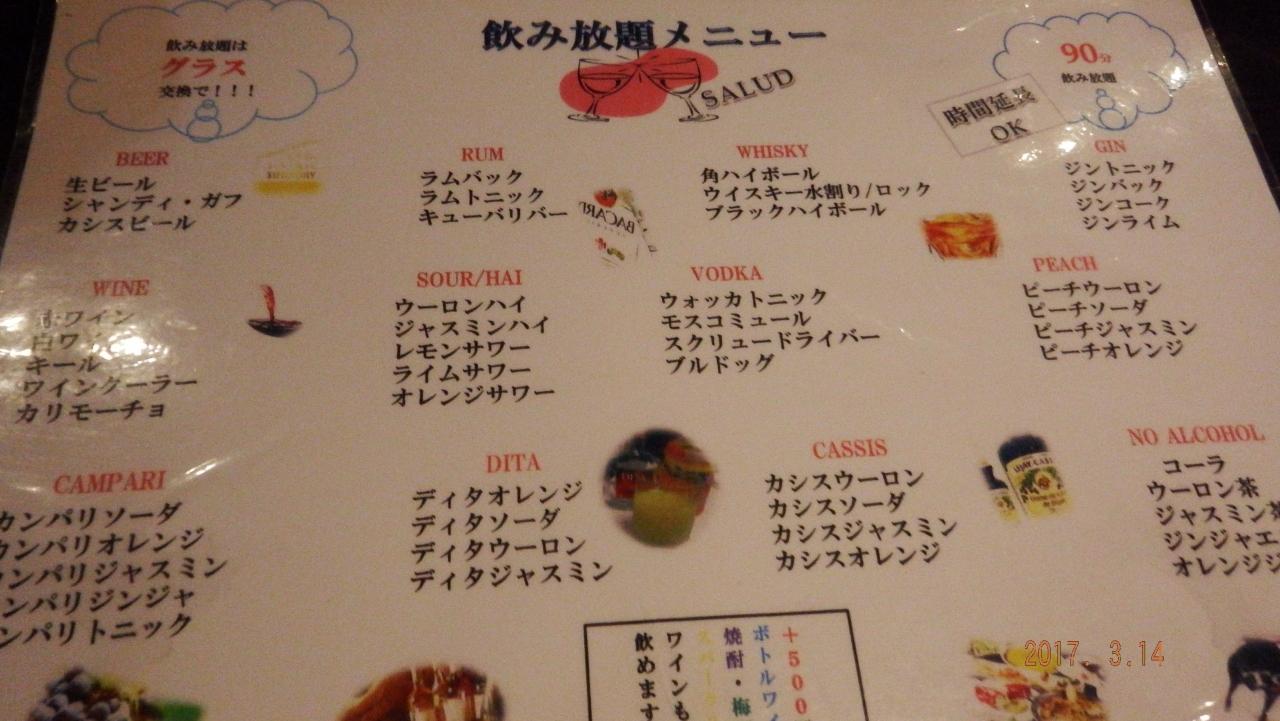 飲み放題メニュー
飲み放題は
グラス
交換で！！！
SALUD
90分
飲み放題
時間延長
OK
BEER
生ビール
シャンディ・ガフ
カシスビール
RUM
ラムバック
ラムトニック
キューバリバー
BACARDI
WHISKY
角ハイボール
ウイスキー水割り/ロック
ブラックハイボール
GIN
ジントニック
ジンバック
ジンコーク
ジンライム
WINE
赤ワイン
白ワイン
キール
ワインクーラー
カリモーチョ
SOUR/HAI
ウーロンハイ
ジャスミンハイ
レモンサワー
ライムサワー
オレンジサワー
VODKA
ウォッカトニック
モスコミュール
スクリュードライバー
ブルドッグ
PEACH
ピーチウーロン
ピーチソーダ
ピーチジャスミン
ピーチオレンジ
CAMPARI
カンパリソーダ
カンパリオレンジ
カンパリジャスミン
ンパリジンジャ
ンパリトニック
DITA
ディタオレンジ
ディタソーダ
ディタウーロン
ディタジャスミン
CASSIS
カシスウーロン
カシスソーダ
カシスジャスミン
カシスオレンジ
NO ALCOHOL
コーラ
ウーロン茶
ジャスミン茶
ジンジャエ
オレンジジ
＋500
ボトルワイ
焼酎・梅
スパーク
ワインも
飲めます
2017. 3.14